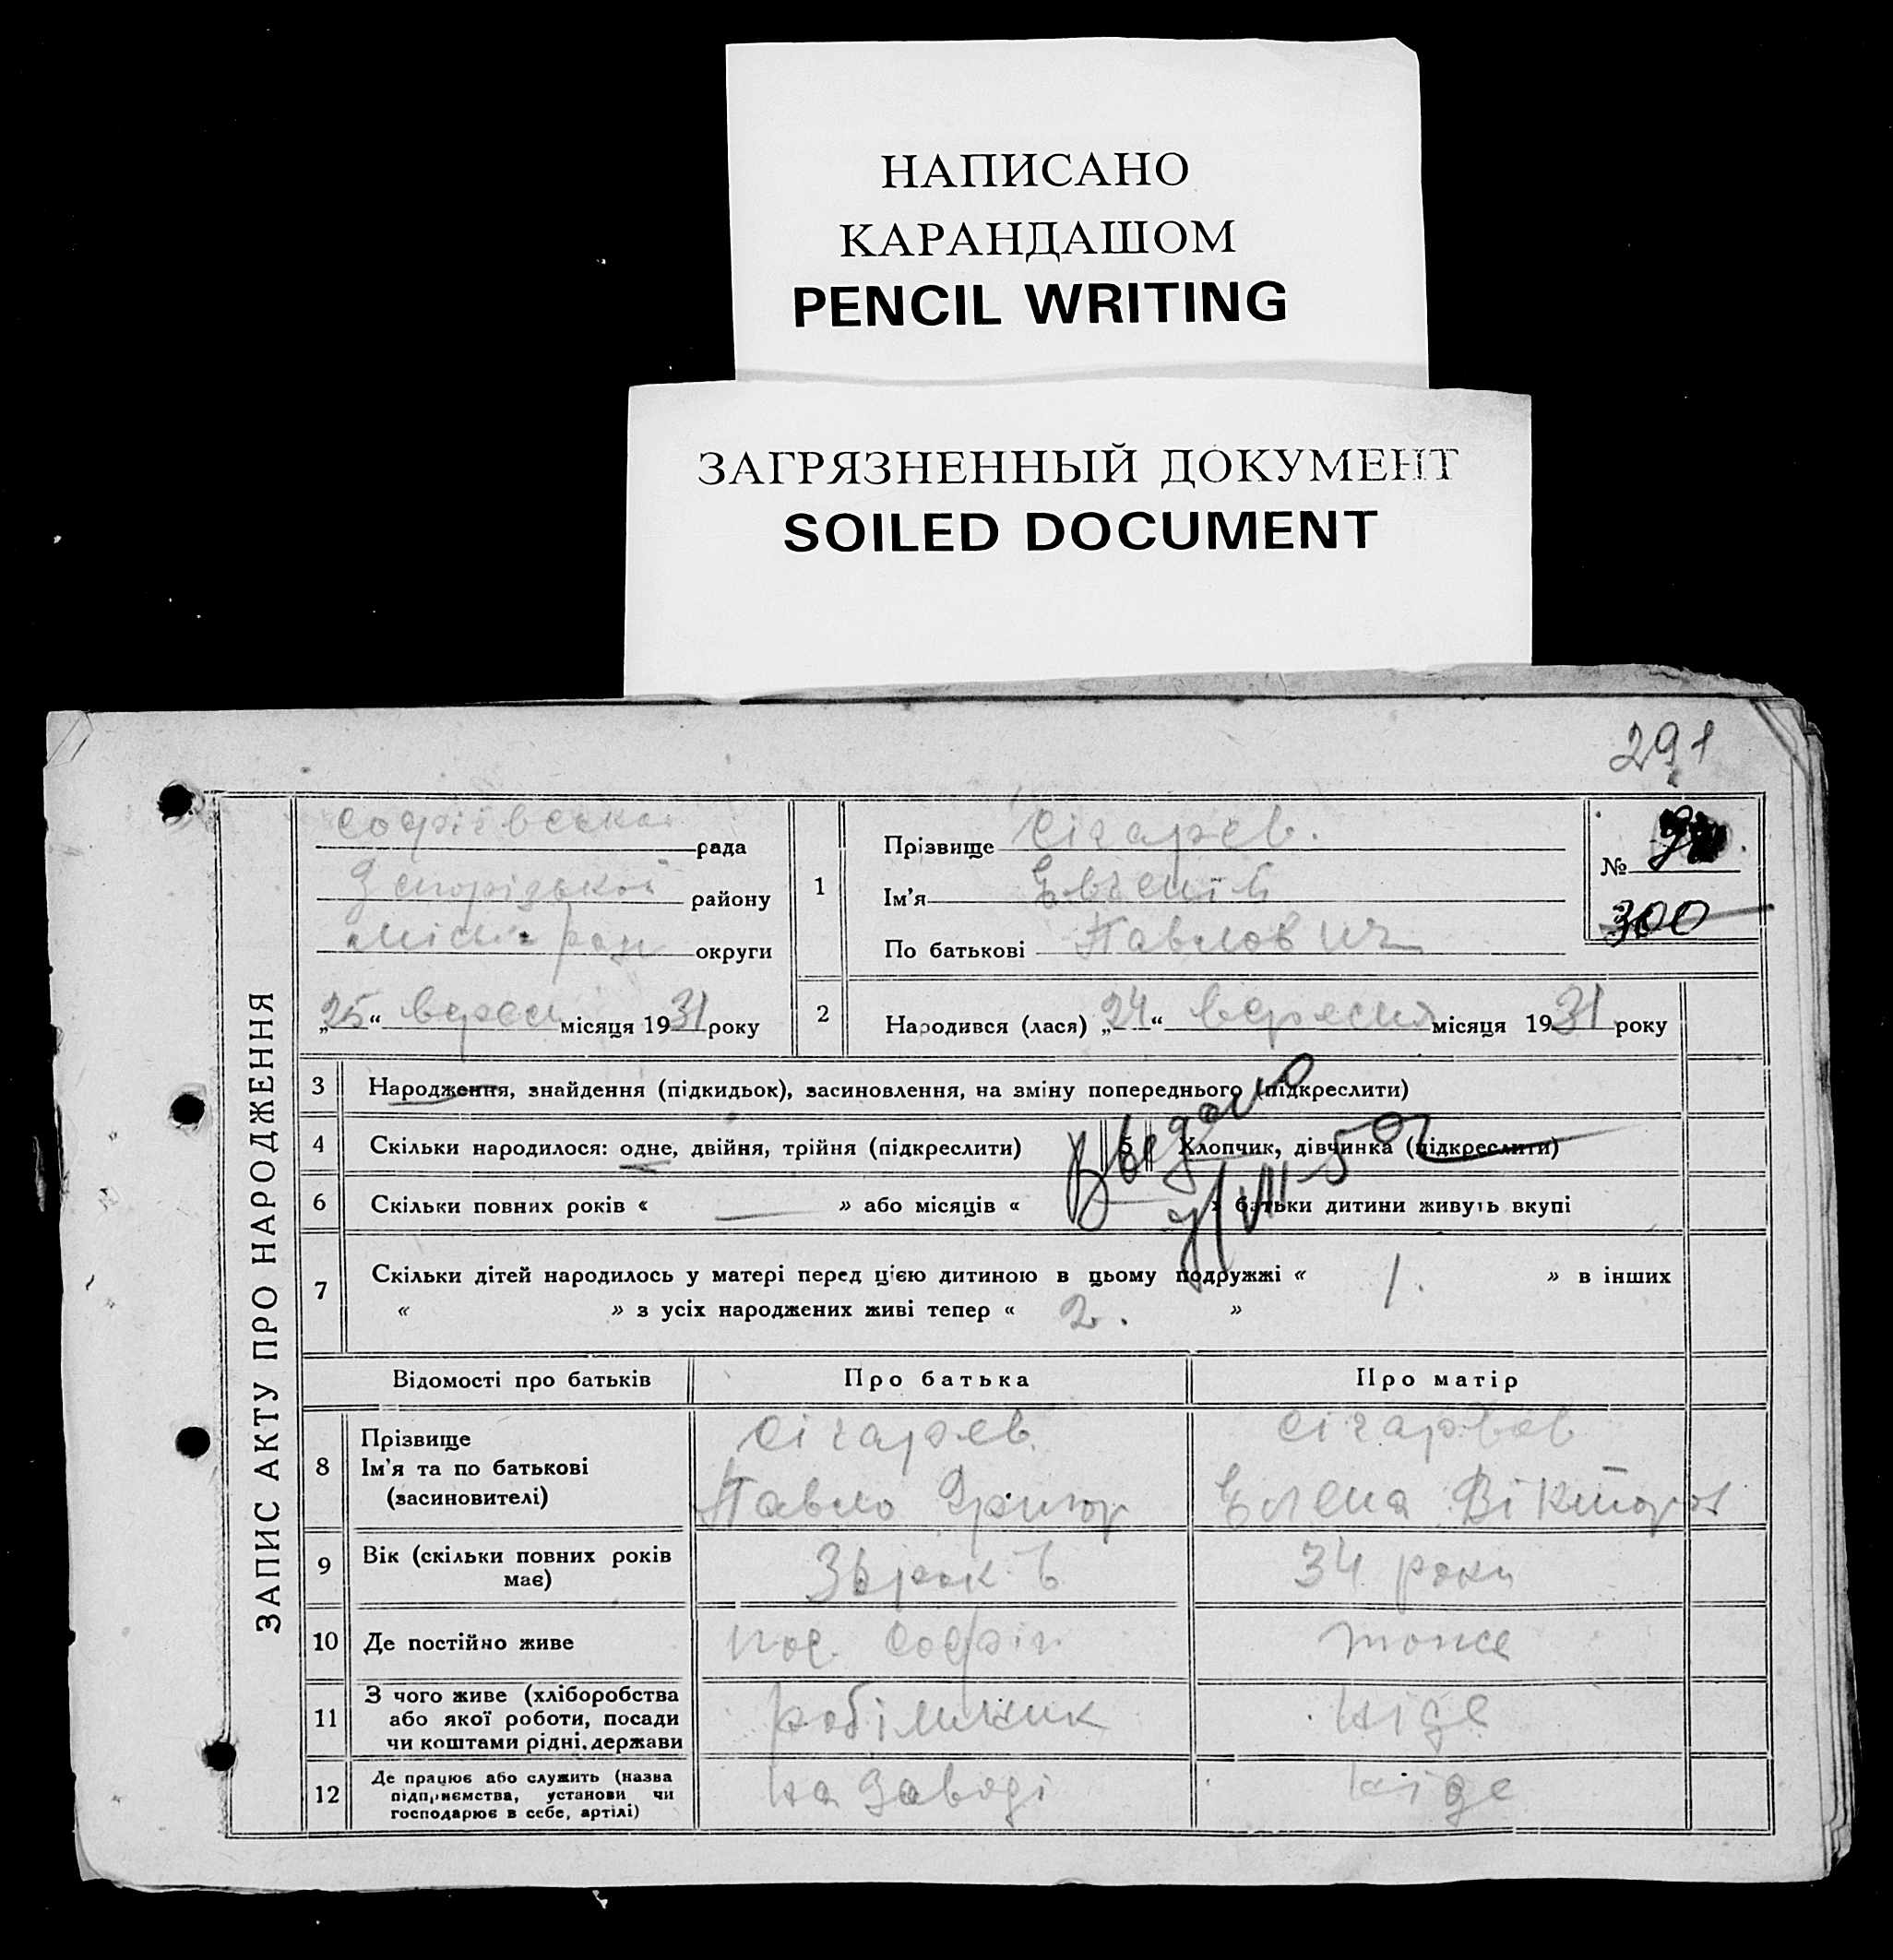 НАПИСАНО
КАРАНДАШОМ
PENCIL WRITING
ЗАГРЯЗНЕННЫЙ ДОКУМЕНТ
SOILED DOCUMENT
291
ЗАПИС АКТУ ПРО НАРОДЖЕННЯ
Софіївська рада
району
округи
„25“ верес місяця 1931 року
1
Прізвище Сігарев.
Ім'я Євгеній
По батькові Павлович
№
300
2
Народився (лася) „24“ вересня місяця 1931 року
3 Народження, знайдення (підкидьок), засиновлення, на зміну попереднього (підкреслити)
4 Скільки народилося: одне, двійня, трійня (підкреслити) 5 Хлопчик, дівчинка (підкреслити)
Выдано
6 Скільки повних років « — » або місяців « » батьки дитини живуть вкупі
7 Скільки дітей народилось у матері перед цією дитиною в цьому подружжі « 1. » в інших
« » з усіх народжених живі тепер « 2. »
Відомості про батьків Про батька Про матір
8 Прізвище
Ім'я та по батькові
(засиновителі)
Сігарев
Павло Григор
Сігарєв
Єлена Віктор
9 Вік (скільки повних років
має)
36 рок 34 роки
10 Де постійно живе пос. Софіг тоже
11 З чого живе (хліборобства
або якої роботи, посади
чи коштами рідні, держави
робітник ніде
12 Де працює або служить (назва
підприємства, установи чи
господарює в себе, артілі)
на Заводі ніде